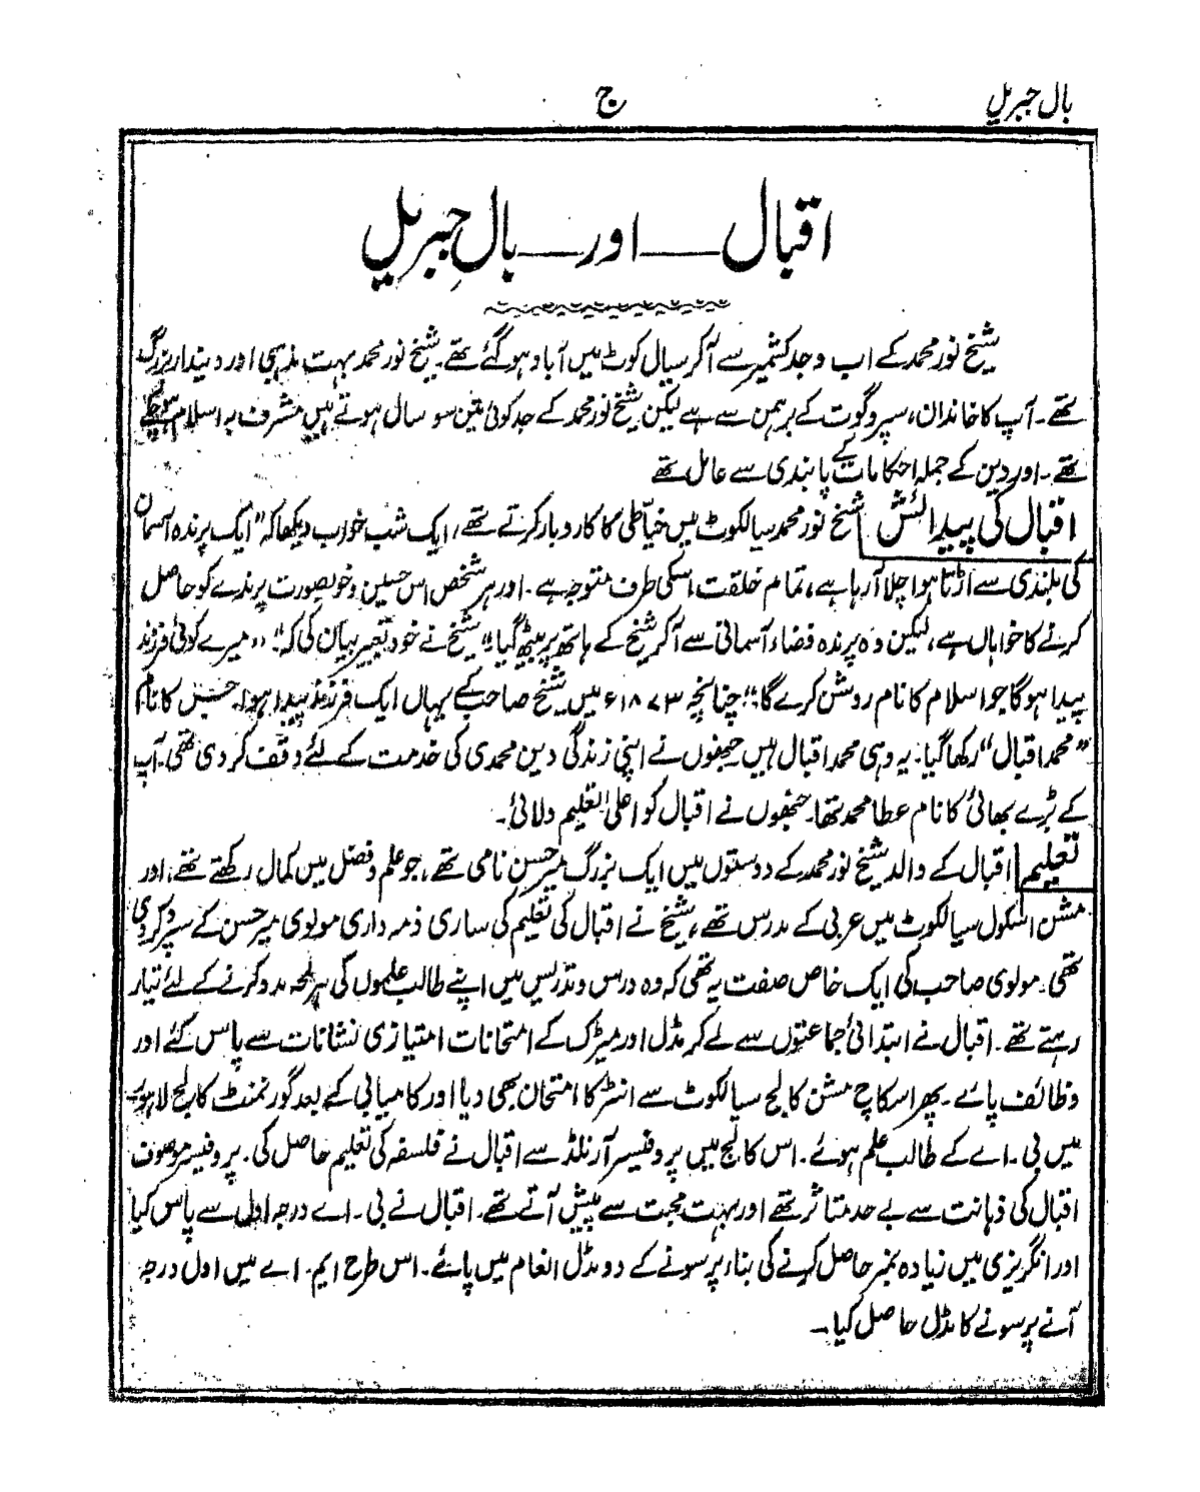 بال جبریل
ج
اقبال — اور — بالِ جبریل
شیخ نور محمد کے اب و جد کشمیر سے آکر سیال کوٹ میں آباد ہوگئے تھے۔ شیخ نور محمد بہت مذہبی اور دیندار بزرگ
تھے۔ آپ کا خاندان، سپرو گوت کے برہمن سے ہے لیکن شیخ نور محمد کے جد کوئی تین سو سال ہوتے ہیں مشرف بہ اسلام ہوچکے
تھے۔ اور دین کے جملہ احکامات کے پابندی سے عامل تھے
اقبال کی پیدائش شیخ نور محمد سیالکوٹ میں خیاطی کا کاروبار کرتے تھے، ایک شب خواب دیکھا کہ "ایک پرندہ آسمان
کی بلندی سے اڑتا ہوا چلا آرہا ہے، تمام خلقت اسکی طرف متوجہ ہے۔ اور ہر شخص اس حسین و خوبصورت پرندے کو حاصل
کرنے کا خواہاں ہے، لیکن وہ پرندہ فضاء آسمانی سے آکر شیخ کے ہاتھ پر بیٹھ گیا" شیخ نے خود تعبیر بیان کی کہ: "میرے کوئی فرزند
پیدا ہوگا جو اسلام کا نام روشن کرے گا"؛ چنانچہ ۱۸۷۳ء میں شیخ صاحب کے یہاں ایک فرزند پیدا ہوا۔ جس کا نام
"محمد اقبال" رکھا گیا۔ یہ وہی محمد اقبال ہیں جنھوں نے اپنی زندگی دین محمدی کی خدمت کے لئے وقف کردی تھی۔ آپ
کے بڑے بھائی کا نام عطا محمد تھا۔ جنھوں نے اقبال کو اعلیٰ تعلیم دلائی۔
تعلیم اقبال کے والد شیخ نور محمد کے دوستوں میں ایک بزرگ میر حسن نامی تھے، جو علم و فضل میں کمال رکھتے تھے، اور
مشن اسکول سیالکوٹ میں عربی کے مدرس تھے، شیخ نے اقبال کی تعلیم کی ساری ذمہ داری مولوی میر حسن کے سپرد کردی
تھی۔ مولوی صاحب کی ایک خاص صفت یہ تھی کہ وہ درس و تدریس میں اپنے طالب علموں کی ہر لمحہ مدد کرنے کے لئے تیار
رہتے تھے۔ اقبال نے ابتدائی جماعتوں سے لے کر مڈل اور میٹرک کے امتحانات امتیازی نشانات سے پاس کئے اور
وظائف پائے۔ پھر اسکاچ مشن کالج سیالکوٹ سے انٹر کا امتحان بھی دیا اور کامیابی کے بعد گورنمنٹ کالج لاہور
میں بی۔ اے کے طالب علم ہوئے۔ اس کالج میں پروفیسر آرنلڈ سے اقبال نے فلسفہ کی تعلیم حاصل کی۔ پروفیسر موصوف
اقبال کی ذہانت سے بے حد متاثر تھے اور بہت محبت سے پیش آتے تھے۔ اقبال نے بی۔ اے درجہ اول سے پاس کیا
اور انگریزی میں زیادہ نمبر حاصل کرنے کی بناء پر سونے کے دو مڈل انعام میں پائے۔ اس طرح ایم۔ اے میں اول درجہ
آنے پر سونے کا مڈل حاصل کیا۔